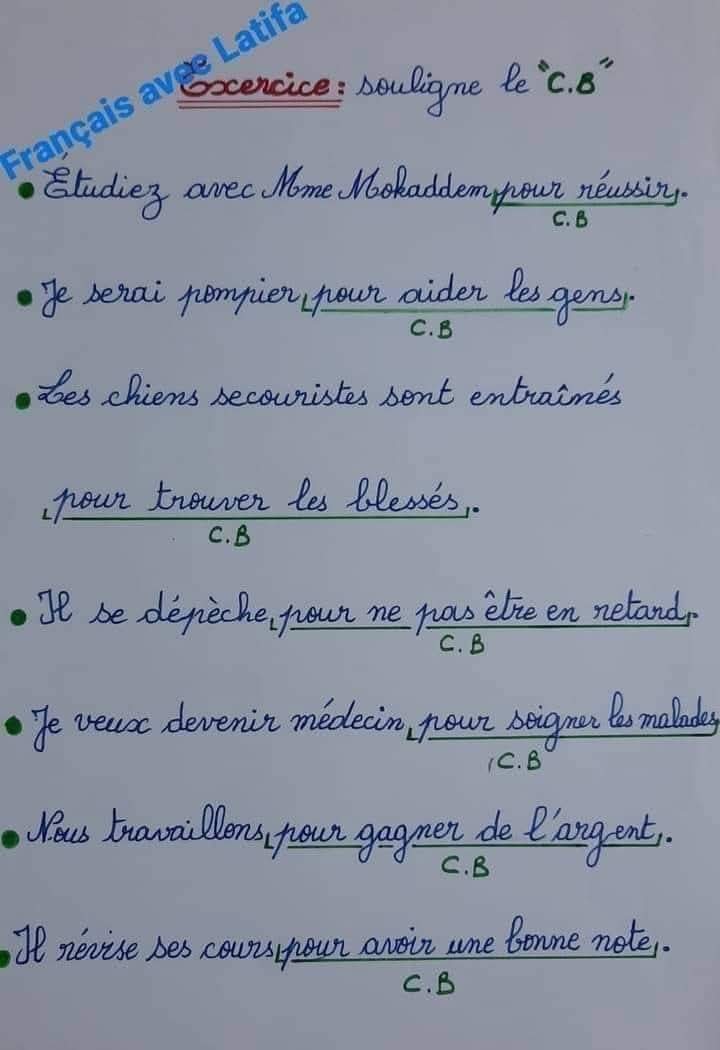 Français avec Latifa
Excercice : souligne le "C.B"
• Étudiez avec Mme Mokaddem pour réussir.
C.B
• Je serai pompier pour aider les gens.
C.B
• Les chiens secouristes sont entraînés
pour trouver les blessés.
C.B
• Il se dépèche pour ne pas être en retard.
C.B
• Je veux devenir médecin pour soigner les malades
C.B
• Nous travaillons pour gagner de l'argent.
C.B
• Il révise ses cours pour avoir une bonne note.
C.B